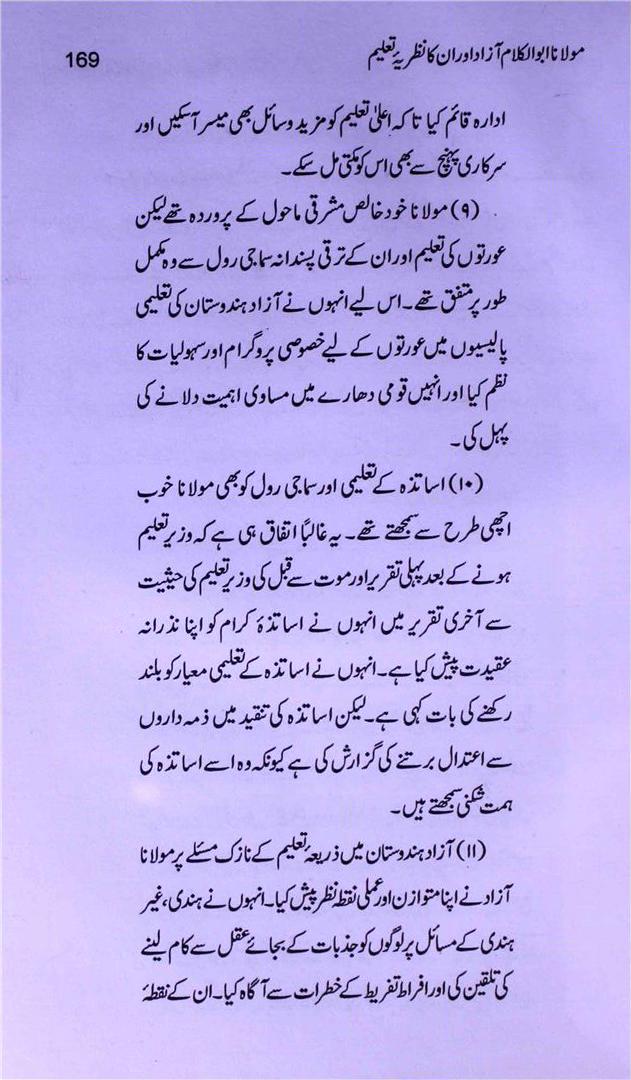 مولانا ابوالکلام آزاد اور ان کا نظریۂ تعلیم
169
ادارہ قائم کیا تاکہ اعلیٰ تعلیم کو مزید وسائل بھی میسر آسکیں اور
سرکاری پہنچ سے بھی اس کو مکتی مل سکے۔
(۹) مولانا خود خالص مشرقی ماحول کے پروردہ تھے لیکن
عورتوں کی تعلیم اور ان کے ترقی پسندانہ سماجی رول سے وہ مکمل
طور پر متفق تھے۔ اس لیے انہوں نے آزاد ہندوستان کی تعلیمی
پالیسیوں میں عورتوں کے لیے خصوصی پروگرام اور سہولیات کا
نظم کیا اور انہیں قومی دھارے میں مساوی اہمیت دلانے کی
پہل کی۔
(۱۰) اساتذہ کے تعلیمی اور سماجی رول کو بھی مولانا خوب
اچھی طرح سے سمجھتے تھے۔ یہ غالباً اتفاق ہی ہے کہ وزیر تعلیم
ہونے کے بعد پہلی تقریر اور موت سے قبل کی وزیر تعلیم کی حیثیت
سے آخری تقریر میں انہوں نے اساتذۂ کرام کو اپنا نذرانہ
عقیدت پیش کیا ہے۔ انہوں نے اساتذہ کے تعلیمی معیار کو بلند
رکھنے کی بات کہی ہے۔ لیکن اساتذہ کی تنقید میں ذمہ داروں
سے اعتدال برتنے کی گزارش کی ہے کیونکہ وہ اسے اساتذہ کی
ہمت شکنی سمجھتے ہیں۔
(۱۱) آزاد ہندوستان میں ذریعۂ تعلیم کے نازک مسئلے پر مولانا
آزاد نے اپنا متوازن اور عملی نقطۂ نظر پیش کیا۔ انہوں نے ہندی، غیر
ہندی کے مسائل پر لوگوں کو جذبات کے بجائے عقل سے کام لینے
کی تلقین کی اور افراط تفریط کے خطرات سے آگاہ کیا۔ ان کے نقطۂ